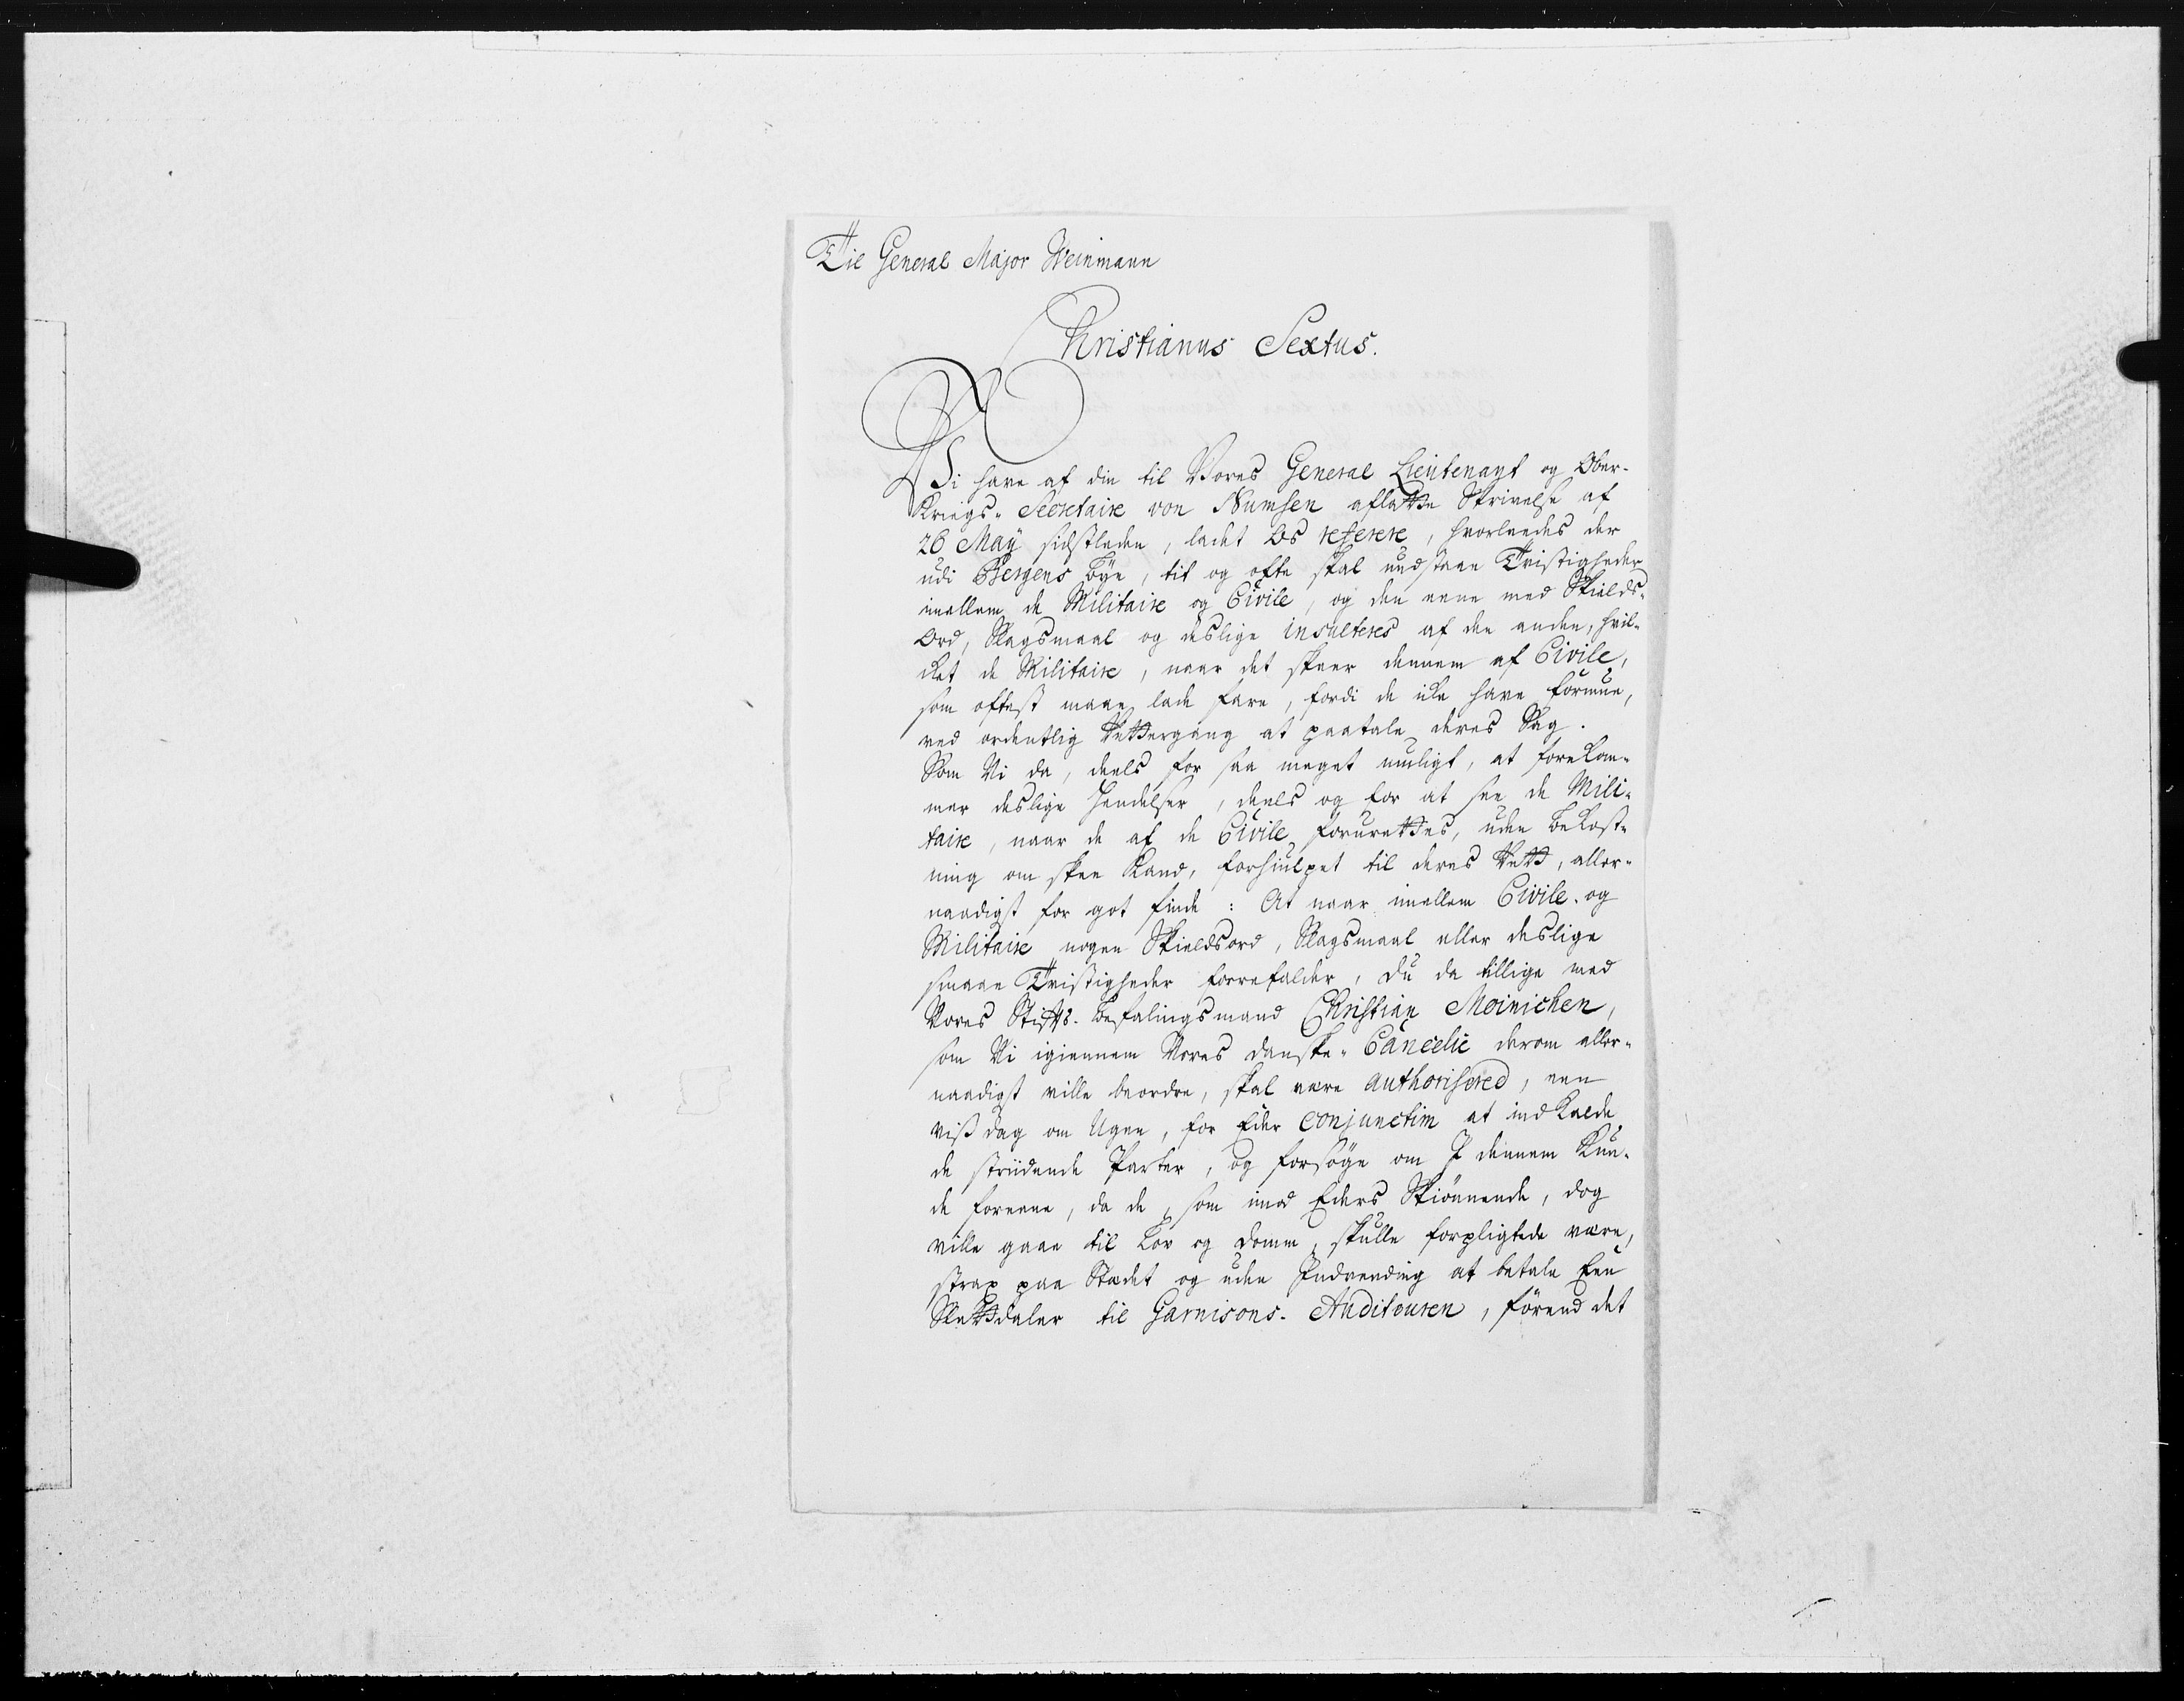 Til General Major Weinmann
Christianus Sextus.
Vi have af din til Vores General Lieutenant og Ober-
Kriegs- Secretaire von Numsen aflatte Skrivelse af
26 May sidstleden, ladet Os referere, hvorleedes der
udi Bergens Bye, tit og ofte skal undstaae Tvistigheder
imellem de Militaire og Civile, og den eene med Skields-
Ord, Slagsmaal og deslige insulteres af den anden, hvil-
ket de Militaire, naar det skeer dennem af Civile,
som oftest maae lade fare, fordi de icke have Formue,
ved ordentlig Rettergang at paatale deres Sag.
Som Vi da, deels for saa meget mueligt, at forekom-
mer deslige Hendelser, deels og for at see de Mili-
taire, naar de af de Civile forurettes, uden Bekost-
ning om skee kand, forhiulpet til deres Rett, aller-
naadigst for got finde: At naar imellem Civile og
Militaire nogen Skieldsord, Slagsmaal eller deslige
smaae Tvistigheder forrefalder, du da tillige med
Vores Stifts- Befalingsmand Christian Moinichen,
som Vi igiennem Vores danske- Cancelie derom aller-
naadigst ville beordre, skal være authoriseret, een
viss dag om Ugen, for Eder conjunctim at indkalde
de striidende Parter, og forsøge om I dennem kun-
de foreene, da de, som imod Eders Skiønnende, dog
ville gaae til Lov og Domm, skulle forpligtede være,
strax paa Stædet og uden Indvending at betale Een
Slettdaler til Garnisons- Auditeuren, førend det